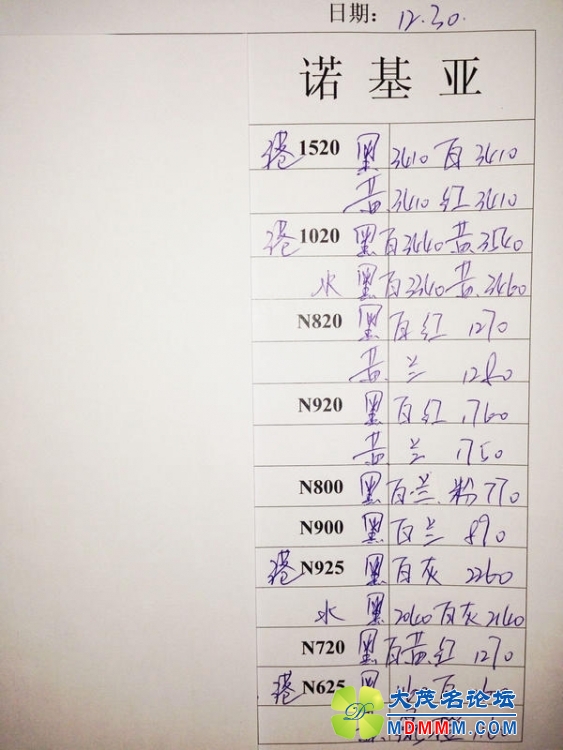 日期：12.30.
诺基亚
港 1520 黑 3410 白 3410
黄 3410 红 3410
港 1020 黑白 3440 黄 3540
水 黑白 3340 黄 3460
N820 黑 白红 1270
黄 兰 1280
N920 黑 白红 1760
黄 兰 1750
N800 黑 白兰 粉 770
N900 黑 白兰 890
港 N925 黑 白灰 2260
水 黑 2040 白灰 2140
N720 黑 白黄红 1270
港 N625 黑 白
大茂名论坛
MDMMM.COM